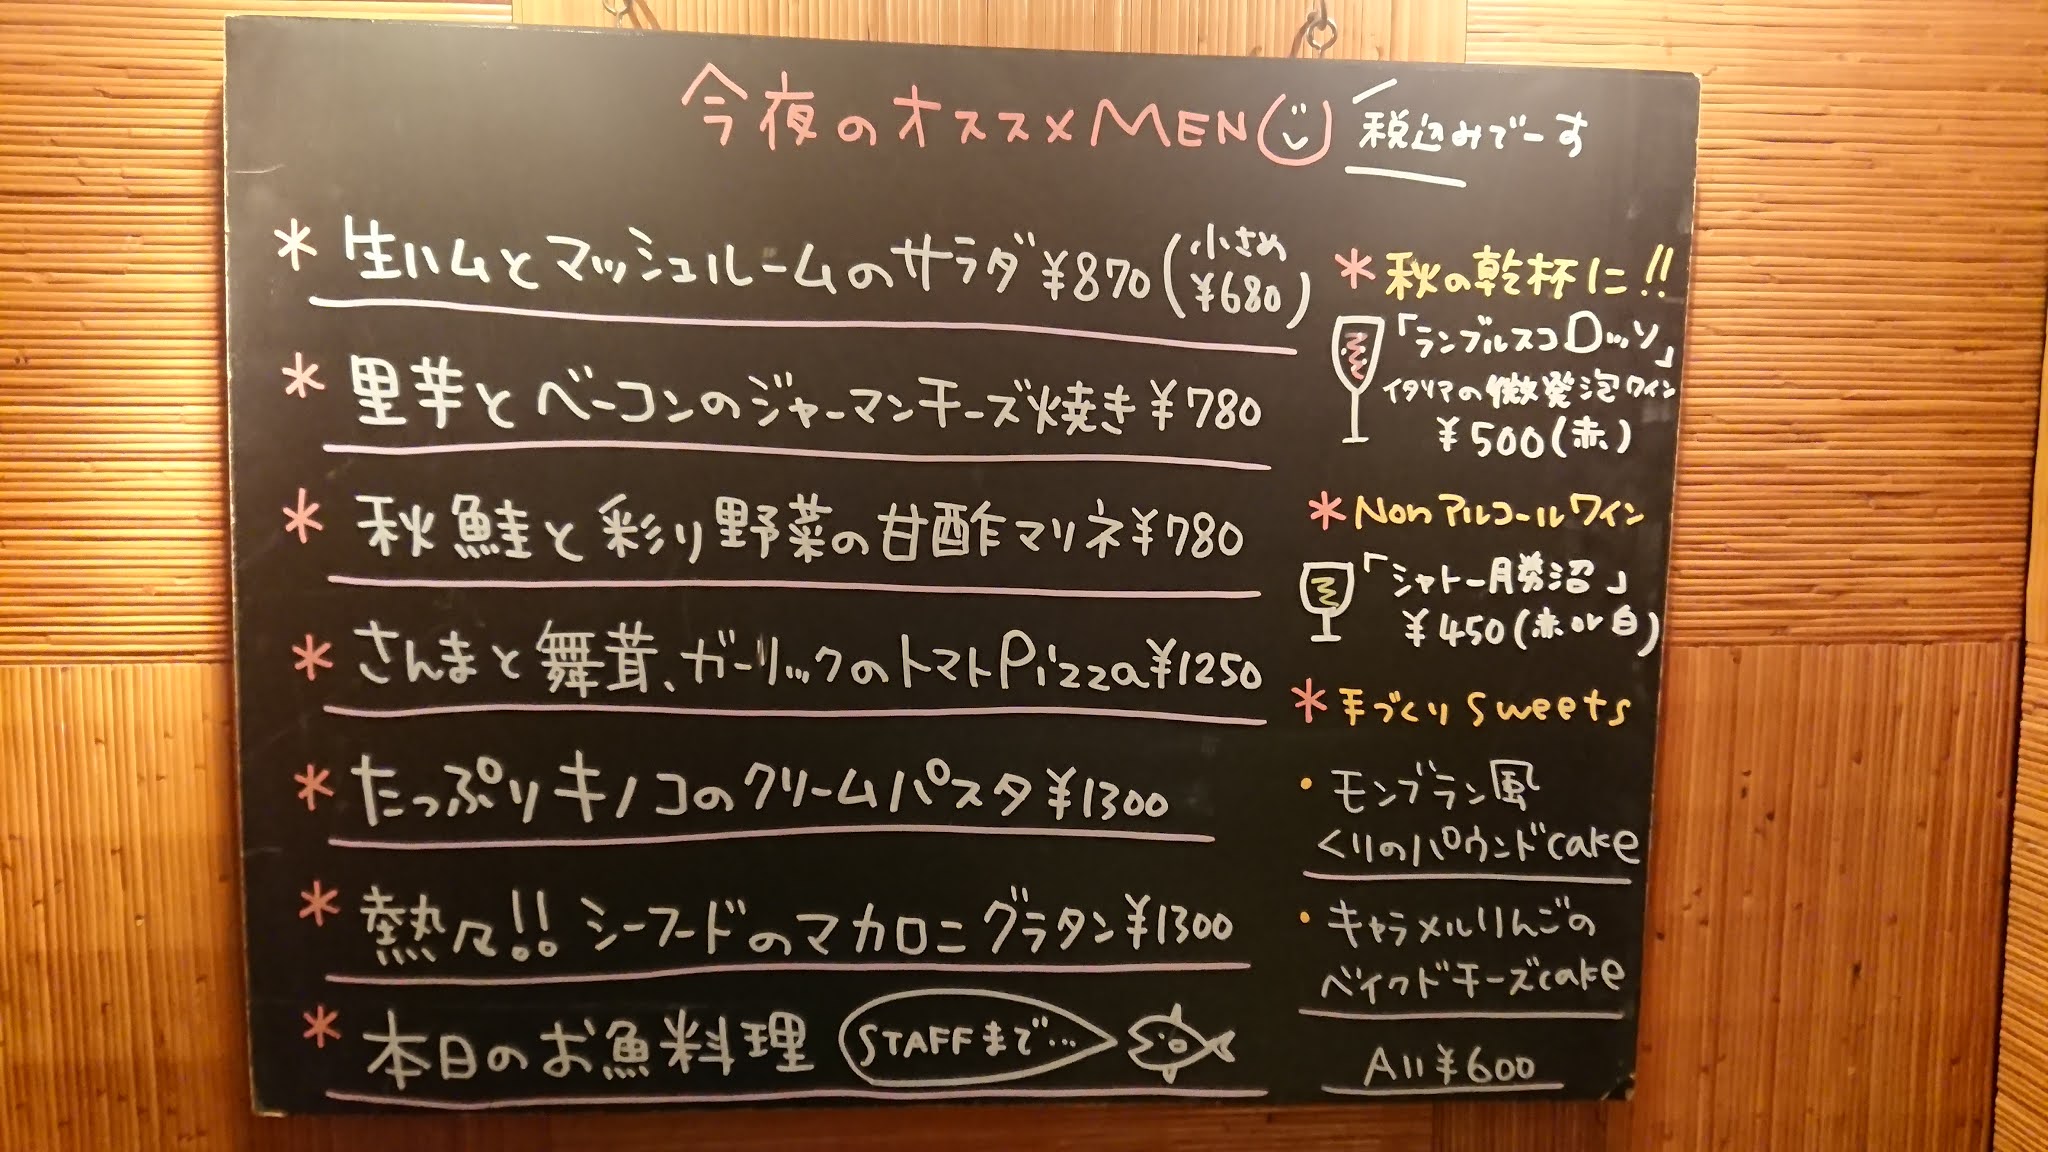 今夜のオススメMENU
税込みでーす
* 生ハムとマッシュルームのサラダ ¥870(小さめ ¥680)
* 里芋とベーコンのジャーマンチーズ焼き ¥780
* 秋鮭と彩り野菜の甘酢マリネ ¥780
* さんまと舞茸、ガーリックのトマトPizza ¥1250
* たっぷりキノコのクリームパスタ ¥1300
* 熱々!! シーフードのマカロニグラタン ¥1300
* 本日のお魚料理 STAFFまで…
* 秋の乾杯に!!
「ランブルスコロッソ」
イタリアの微発泡ワイン
¥500(赤)
* Nonアルコールワイン
「シャトー勝沼」
¥450(赤or白)
* 手づくりSweets
・モンブラン風
くりのパウンドcake
・キャラメルりんごの
ベイクドチーズcake
All ¥600